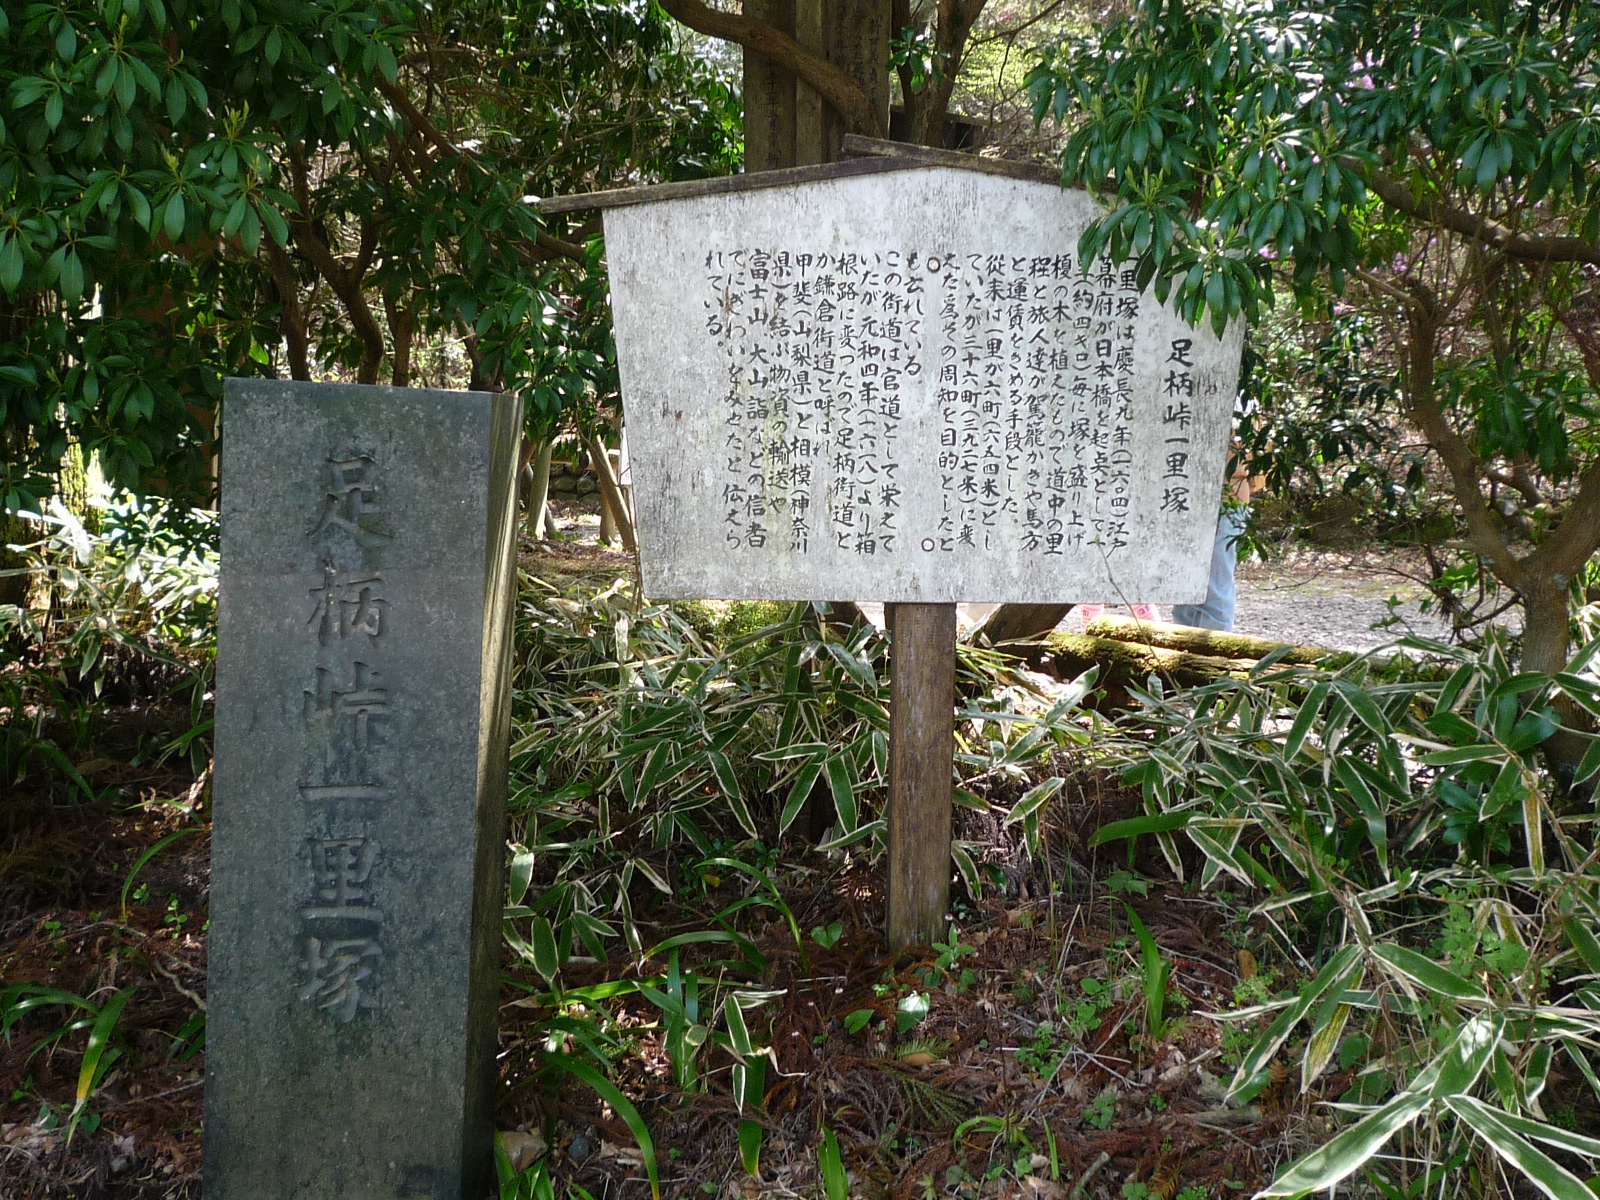 足柄峠一里塚
足柄峠一里塚
一里塚は慶長九年(一六〇四)江戸
幕府が日本橋を起点として一
(約四キロ)毎に塚を盛り上げ
榎の木を植えたもので道中の里
程と旅人達が駕籠かきや馬方
と運賃をきめる手段とした。
従来は一里が六町(六五四米)とし
ていたが三十六町(三九二七米)に変
えた為その周知を目的としたと
も云れている。
この街道は官道として栄えて
いたが元和四年(一六一八)より箱
根路に変ったので足柄街道と
か鎌倉街道と呼ばれ
甲斐(山梨県)と相模(神奈川
県)を結ぶ物資の輸送や
富士山、大山詣などの信者
でにぎわいをみせたと伝えら
れている。